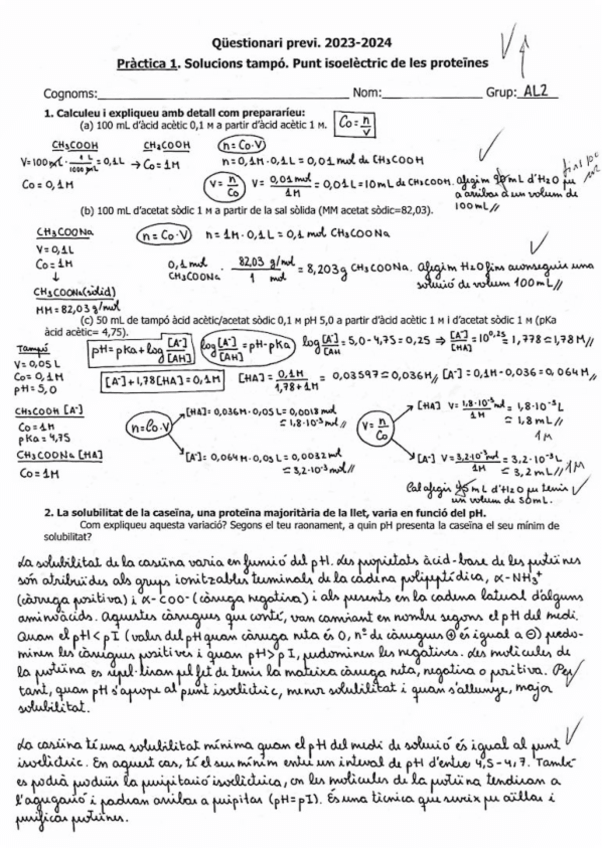 Qüestionari previ. 2023-2024
Pràctica 1. Solucions tampó. Punt isoelèctric de les proteïnes
Cognoms: Nom: Grup: AL2
1. Calculeu i expliqueu amb detall com prepararíeu:
(a) 100 mL d'àcid acètic 0,1 M a partir d'àcid acètic 1 M. Co = n/V
CH₃COOH CH₃COOH n = Co·V
V=100mL · 1 L/1000 mL = 0,1L → Co = 1M n = 0,1M · 0,1L = 0,01 mol de CH₃COOH
Co = 0,1M V = n/Co V = 0,01mol/1M = 0,01L = 10mL de CH₃COOH. Afegim mL d'H₂O per
a arribar a un volum de
100mL//
fins 100
(b) 100 mL d'acetat sòdic 1 M a partir de la sal sòlida (MM acetat sòdic=82,03).
CH₃COONa n = Co·V n = 1M · 0,1L = 0,1 mol CH₃COONa
V = 0,1L
Co = 1M
↓
0,1 mol CH₃COONa · 82,03 g/mol / 1 mol = 8,203g CH₃COONa. Afegim H₂O fins aconseguir una
solució de volum 100mL//
CH₃COONa(sòlid)
MM = 82,03 g/mol
(c) 50 mL de tampó àcid acètic/acetat sòdic 0,1 M pH 5,0 a partir d'àcid acètic 1 M i d'acetat sòdic 1 M (pKa
àcid acètic= 4,75).
Tampó pH = pKa + log [A⁻]/[AH] log [A⁻]/[AH] = pH - pKa log [A⁻]/[AH = 5,0 - 4,75 = 0,25 ⇒ [A⁻]/[HA] = 10^0,25 = 1,778 ≃ 1,78M//
V = 0,05L
Co = 0,1M
pH = 5,0
[A⁻] + 1,78[HA] = 0,1M [HA] = 0,1M/1,78+1M = 0,03597 ≃ 0,036M// [A⁻] = 0,1M - 0,036 = 0,064M//
CH₃COOH [A⁻]
Co = 1M
pKa = 4,75
CH₃COONa [HA]
Co = 1M
n = Co·V
[HA] = 0,036M · 0,05L = 0,0018 mol
≃ 1,8·10⁻³ mol//
[A⁻] = 0,064M · 0,05L = 0,0032 mol
≃ 3,2·10⁻³ mol//
V = n/Co
[HA] V = 1,8·10⁻³mol/1M = 1,8·10⁻³L
≃ 1,8mL//
1M
[A⁻] V = 3,2·10⁻³mol/1M = 3,2·10⁻³L
≃ 3,2mL// 1M
Cal afegir mL d'H₂O per tenir
un volum de 50mL.
2. La solubilitat de la caseïna, una proteïna majoritària de la llet, varia en funció del pH.
Com expliqueu aquesta variació? Segons el teu raonament, a quin pH presenta la caseïna el seu mínim de
solubilitat?
La solubilitat de la caseïna varia en funció del pH. Les propietats àcid-base de les proteïnes
són atribuïdes als grups ionitzables terminals de la cadena polipeptídica, α-NH₃⁺
(càrrega positiva) i α-COO⁻ (càrrega negativa) i als presents en la cadena lateral d'alguns
aminoàcids. Aquestes càrregues que conté, van canviant en nombre segons el pH del medi.
Quan el pH < pI (valor del pH quan càrrega neta és 0, nº de càrregues ⊕ és igual a ⊖) predo-
minen les càrregues positives i quan pH > pI, predominen les negatives. Les molècules de
la proteïna es repel·liran pel fet de tenir la mateixa càrrega neta, negativa o positiva. Per
tant, quan pH s'apropa al punt isoelèctric, menor solubilitat i quan s'allunya, major
solubilitat.
La caseïna té una solubilitat mínima quan el pH del medi de solució és igual al punt
isoelèctric. En aquest cas, té el seu mínim entre un interval de pH d'entre 4,5-4,7. També
es podrà produir la precipitació isoelèctrica, on les molècules de la proteïna tendiran a
l'agregació i podran arribar a precipitar (pH=pI). És una tècnica que serveix per aïllar i
purificar proteïnes.